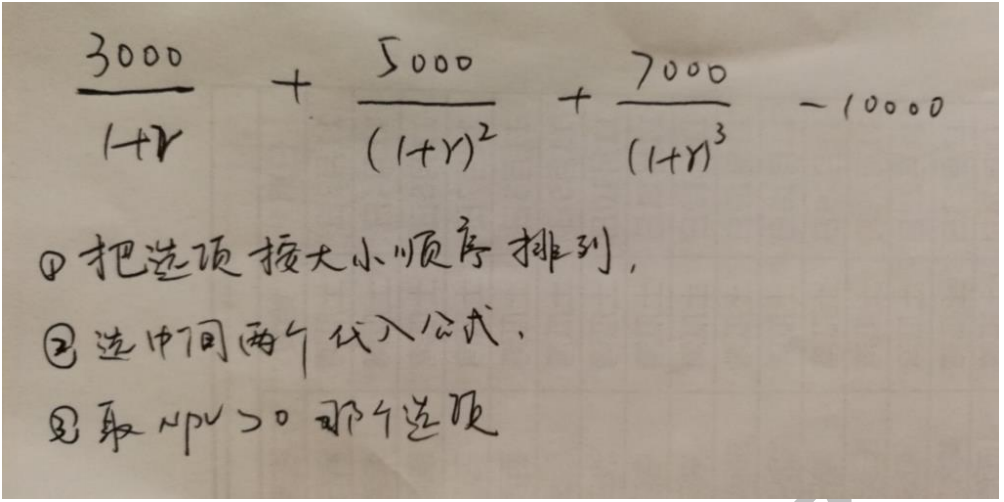 3000/(1+r) + 5000/(1+r)^2 + 7000/(1+r)^3 - 10000
① 把选项按大小顺序排列,
② 选中间两个代入公式.
③ 取 NPV>0 那个选项